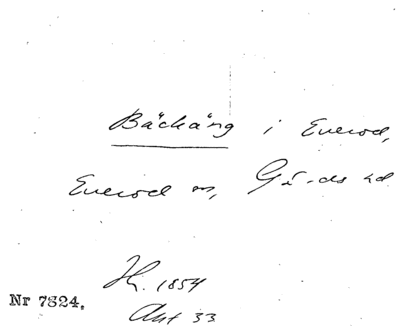 Bäckäng i Everöd,
Everöd sn, Gärds hd
Nr 7824.
1854
Akt 33